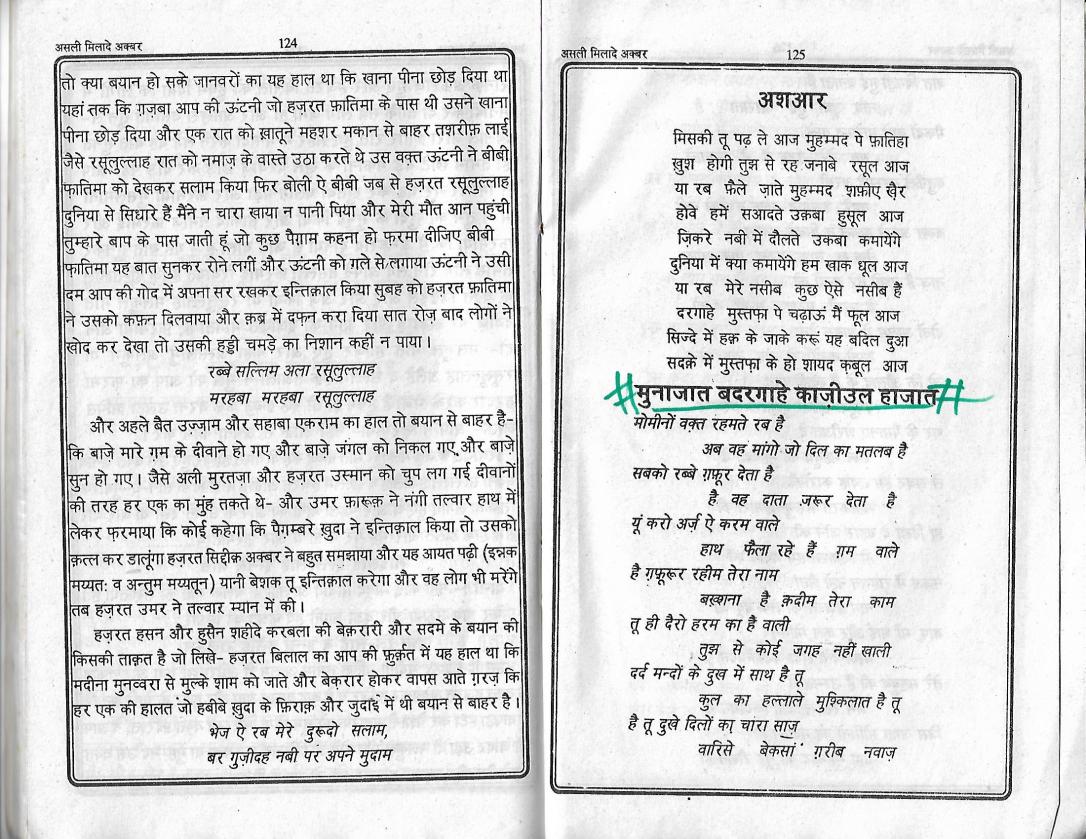 असली मिलादे अक्बर
124
तो क्या बयान हो सके जानवरों का यह हाल था कि खाना पीना छोड़ दिया था
यहां तक कि ग़ज़बा आप की ऊंटनी जो हज़रत फ़ातिमा के पास थी उसने खाना
पीना छोड़ दिया और एक रात को ख़ातूने महशर मकान से बाहर तशरीफ़ लाई
जैसे रसूलुल्लाह रात को नमाज़ के वास्ते उठा करते थे उस वक़्त ऊंटनी ने बीबी
फ़ातिमा को देखकर सलाम किया फिर बोली ऐ बीबी जब से हज़रत रसूलुल्लाह
दुनिया से सिधारे हैं मैंने न चारा खाया न पानी पिया और मेरी मौत आन पहुंची
तुम्हारे बाप के पास जाती हूं जो कुछ पैग़ाम कहना हो फ़रमा दीजिए बीबी
फ़ातिमा यह बात सुनकर रोने लगीं और ऊंटनी को गले से लगाया ऊंटनी ने उसी
दम आप की गोद में अपना सर रखकर इन्तिक़ाल किया सुबह को हज़रत फ़ातिमा
ने उसको कफ़न दिलवाया और क़ब्र में दफ़न करा दिया सात रोज़ बाद लोगों ने
खोद कर देखा तो उसकी हड्डी चमड़े का निशान कहीं न पाया।
रब्बे सल्लिम अला रसूलुल्लाह
मरहबा मरहबा रसूलुल्लाह
और अहले बैत उज़्ज़ाम और सहाबा एकराम का हाल तो बयान से बाहर है-
कि बाज़े मारे ग़म के दीवाने हो गए और बाज़े जंगल को निकल गए और बाज़े
सुन हो गए। जैसे अली मुरतज़ा और हज़रत उस्मान को चुप लग गई दीवानों
की तरह हर एक का मुंह तकते थे- और उमर फ़ारूक़ ने नंगी तल्वार हाथ में
लेकर फरमाया कि कोई कहेगा कि पैग़म्बरे ख़ुदा ने इन्तिक़ाल किया तो उसको
क़त्ल कर डालूंगा हज़रत सिद्दीक़ अक्बर ने बहुत समझाया और यह आयत पढ़ी (इन्नक
मय्यतः व अन्तुम मय्यतून) यानी बेशक तू इन्तिक़ाल करेगा और वह लोग भी मरेंगे
तब हज़रत उमर ने तल्वार म्यान में की।
हज़रत हसन और हुसैन शहीदे करबला की बेक़रारी और सदमे के बयान की
किसकी ताक़त है जो लिखे- हज़रत बिलाल का आप की फ़ुर्क़त में यह हाल था कि
मदीना मुनव्वरा से मुल्के शाम को जाते और बेक़रार होकर वापस आते ग़रज़ कि
हर एक की हालत जो हबीबे ख़ुदा के फ़िराक़ और जुदाई में थी बयान से बाहर है।
भेज ऐ रब मेरे दुरूदो सलाम,
बर गुज़ीदह नबी पर अपने मुदाम
असली मिलादे अक्बर
125
अशआर
मिसकी तू पढ़ ले आज मुहम्मद पे फ़ातिहा
ख़ुश होगी तुझ से रह जनाबे रसूल आज
या रब फ़ैले ज़ाते मुहम्मद शफ़ीए ख़ैर
होवे हमें सआदते उक़बा हुसूल आज
ज़िकरे नबी में दौलते उकबा कमायेंगे
दुनिया में क्या कमायेंगे हम खाक धूल आज
या रब मेरे नसीब कुछ ऐसे नसीब हैं
दरगाहे मुस्तफ़ा पे चढ़ाऊं मैं फूल आज
सिज्दे में हक़ के जाके करूं यह बदिल दुआ
सदक़े में मुस्तफ़ा के हो शायद क़बूल आज
#मुनाजात बदरगाहे काज़ीउल हाजात#
मोमीनों वक़्त रहमते रब है
अब वह मांगो जो दिल का मतलब है
सबको रब्बे ग़फ़ूर देता है
है वह दाता ज़रूर देता है
यूं करो अर्ज़ ऐ करम वाले
हाथ फैला रहे हैं ग़म वाले
है ग़फ़ूरूर रहीम तेरा नाम
बख़्शना है क़दीम तेरा काम
तू ही दैरो हरम का है वाली
तुझ से कोई जगह नहीं खाली
दर्द मन्दों के दुख में साथ है तू
कुल का हल्लाले मुश्किलात है तू
है तू दुखे दिलों का चारा साज़
वारिसे बेकसां ग़रीब नवाज़